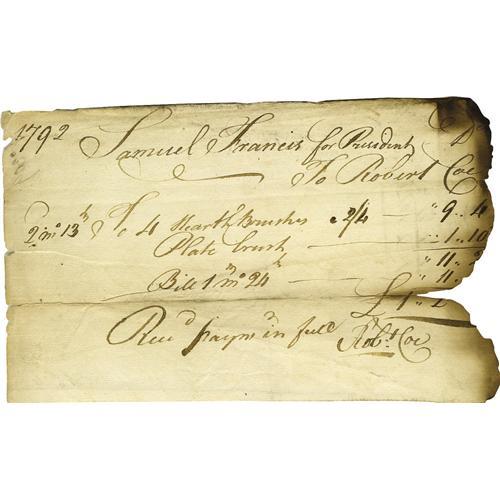 1792
Samuel Francis for President Dr
To Robert Coe
2 mo 13th To 4 Hearth Brushes 2/4 — " 9 .. 4
Plate brush — 1 .. 10
" 11 .. 2
Bill 1st mo 24th — " 11 ..
£ 1 ..
Recd paymt in full Robt Coe